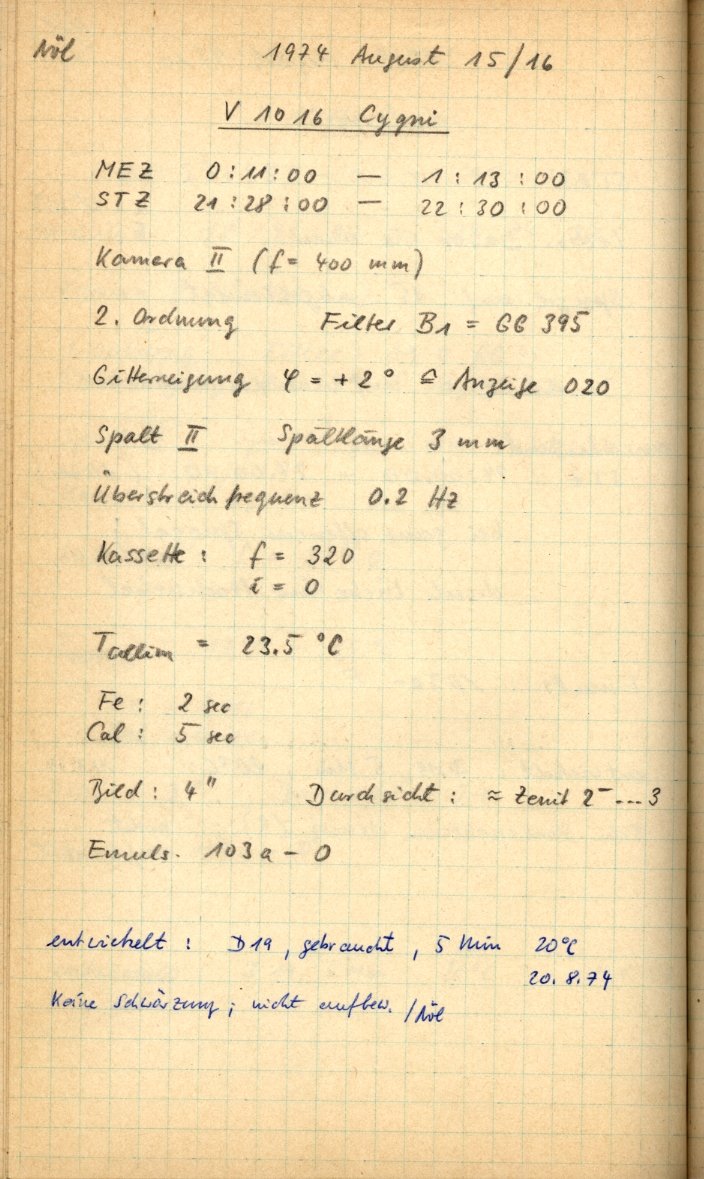 Nöl 1974 August 15/16
V 1016 Cygni
MEZ 0:11:00 — 1:13:00
STZ 21:28:00 — 22:30:00
Kamera II (f = 400 mm)
2. Ordnung Filter B1 = GG 395
Gitterneigung φ = +2° ≙ Anzeige 020
Spalt II Spaltlänge 3 mm
Überstreichfrequenz 0.2 Hz
Kassette: f = 320
i = 0
= 23.5 °C
Fe: 2 sec
Cal: 5 sec
Bild: 4" Durchsicht: ≈ Zenit 2⁻...3
Emuls. 103a-O
entwickelt: D19, gebraucht, 5 Min 20°C
20.8.74
Keine Schwärzung; nicht aufbew. /Nöl